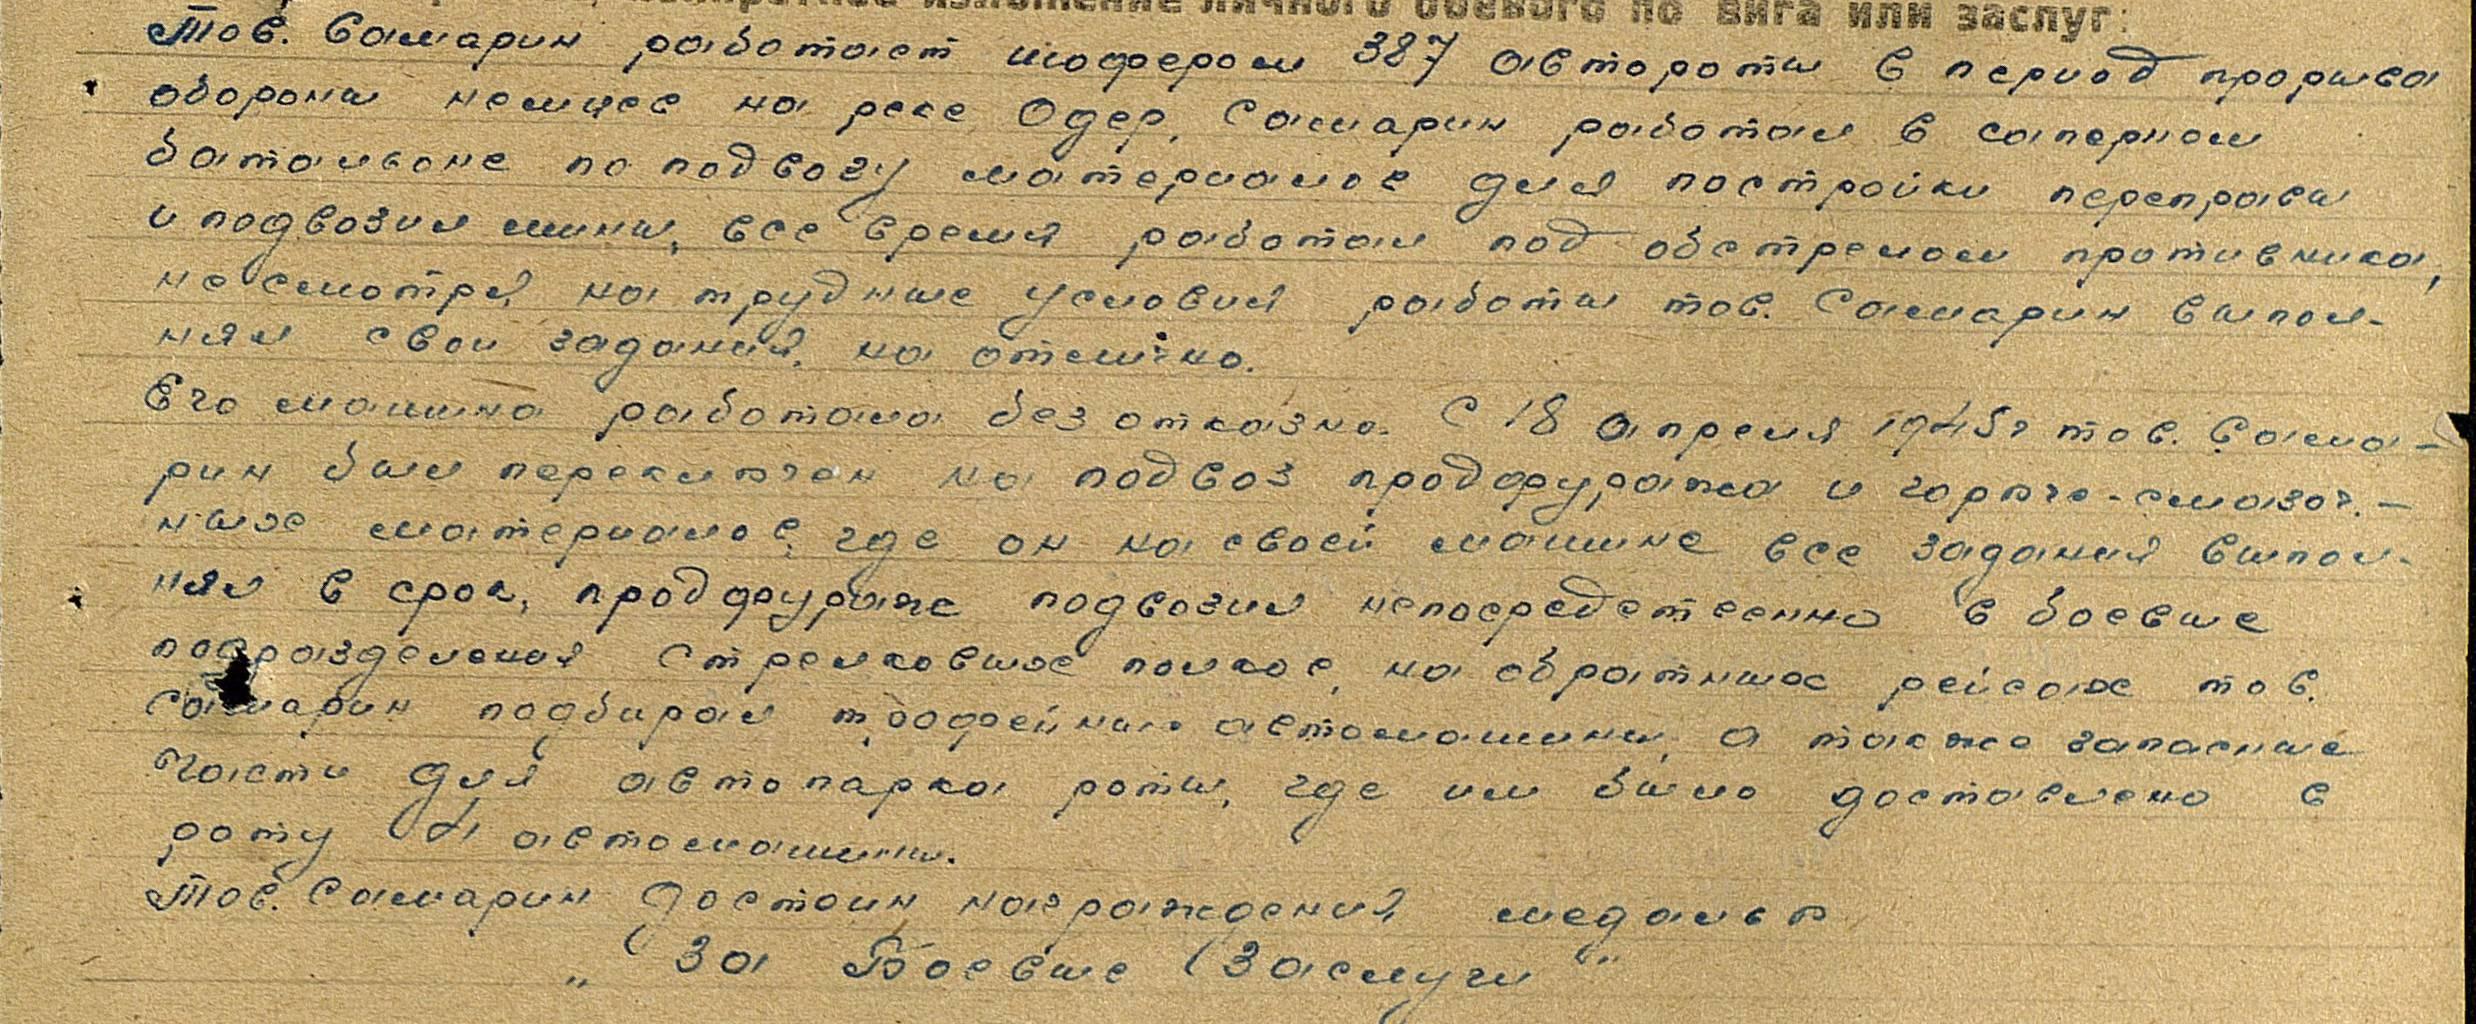 конкретное изложение личного боевого по вига или заслуг:
Тов. Самарин работает шофером 387 автороты в период прорыва
обороны немцев на реке Одер, Самарин работал в саперном
батальоне по подвозу материалов для постройки переправы
и подвозил мины, все время работал под обстрелом противника,
несмотря на трудные условия работы тов. Самарин выпол-
нял свои задания, на отлично.
Его машина работала безотказно. С 18 апреля 1945г тов. Сама-
рин был переключен на подвоз продфуража и горюче-смазоч.-
ных материалов, где он на своей машине все задания выпол-
нял в срок, продфураж подвозил непосредственно в боевые
подразделения стрелковых полков, на обратных рейсах тов.
Самарин подбирал трофейные автомашины, а также запасные
части для автопарка роты, где им было доставлено в
роту 4 автомашины.
Тов. Самарин достоин награждения медалью
„За Боевые Заслуги"